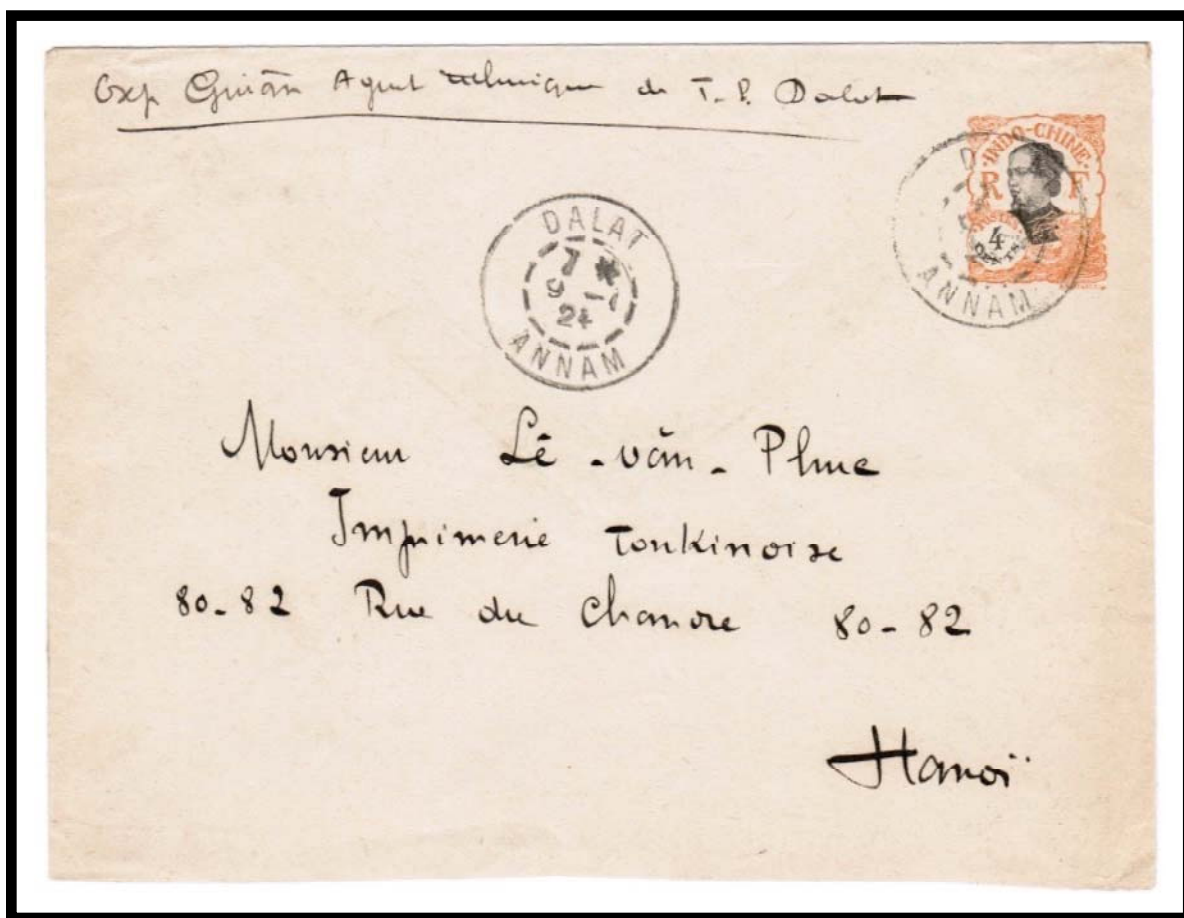 Exp Gián Agent technique de T.P. Dalat
INDO-CHINE
R F
4
DALAT
7 *
9 -
24
ANNAM
ANNAM
Monsieur Lê-văn-Phuc
Imprimerie Tonkinoise
80-82 Rue du Chanvre 80-82
Hanoï